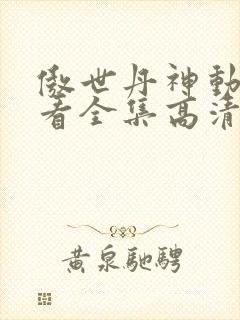 傲世丹神動
看全集高清
黄泉馳騁